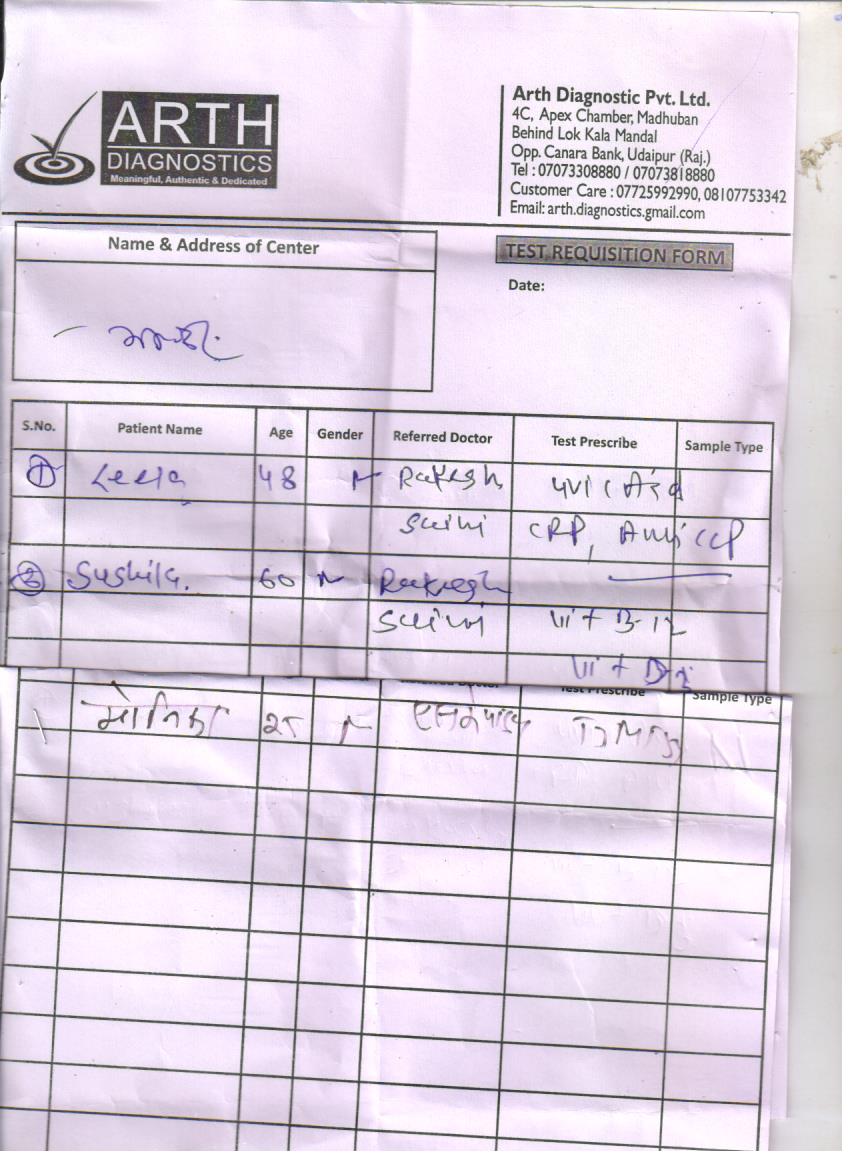 ARTH
DIAGNOSTICS
Meaningful, Authentic & Dedicated
Arth Diagnostic Pvt. Ltd.
4C, Apex Chamber, Madhuban
Behind Lok Kala Mandal
Opp. Canara Bank, Udaipur (Raj.)
Tel : 07073308880 / 07073818880
Customer Care : 07725992990, 08107753342
Email: arth.diagnostics.gmail.com
Name & Address of Center
TEST REQUISITION FORM
Date:
S.No. Patient Name Age Gender Referred Doctor Test Prescribe Sample Type
1 Leela 48 Rakesh
CRP, Anti CCP
2 Sushila. 60 Rakesh
Vit B-12
Vit D3
Test Prescribe Sample Type
1 मोनिका